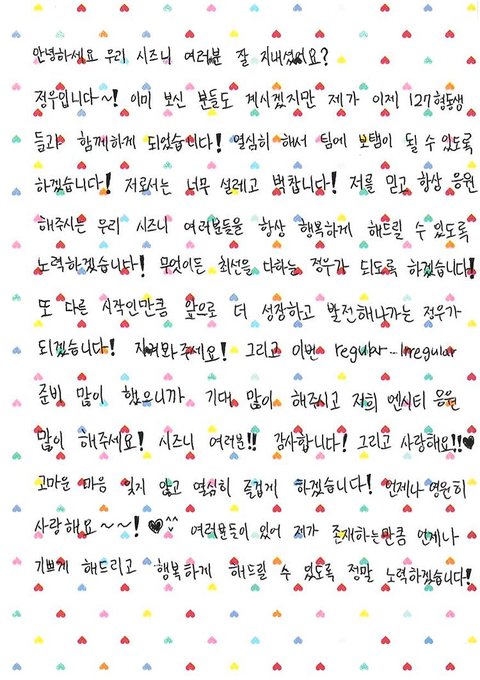 안녕하세요 우리 시즈니 여러분 잘 지내셨어요?
정우입니다~! 이미 보신 분들도 계시겠지만 제가 이제 127형동생
들과 함께하게 되었습니다! 열심히 해서 팀에 보탬이 될 수 있도록
하겠습니다! 저로서는 너무 설레고 벅찹니다! 저를 믿고 항상 응원
해주시는 우리 시즈니 여러분들을 항상 행복하게 해드릴 수 있도록
노력하겠습니다! 무엇이든 최선을 다하는 정우가 되도록 하겠습니다!
또 다른 시작인만큼 앞으로 더 성장하고 발전해나가는 정우가
되겠습니다! 지켜봐주세요! 그리고 이번 regular-Irregular
준비 많이 했으니까 기대 많이 해주시고 저희 엔시티 응원
많이 해주세요! 시즈니 여러분!! 감사합니다! 그리고 사랑해요!!♥
고마운 마음 잊지 않고 열심히 즐겁게 하겠습니다! 언제나 영원히
사랑해요~~! ♥^^ 여러분들이 있어 제가 존재하는만큼 언제나
기쁘게 해드리고 행복하게 해드릴 수 있도록 정말 노력하겠습니다!